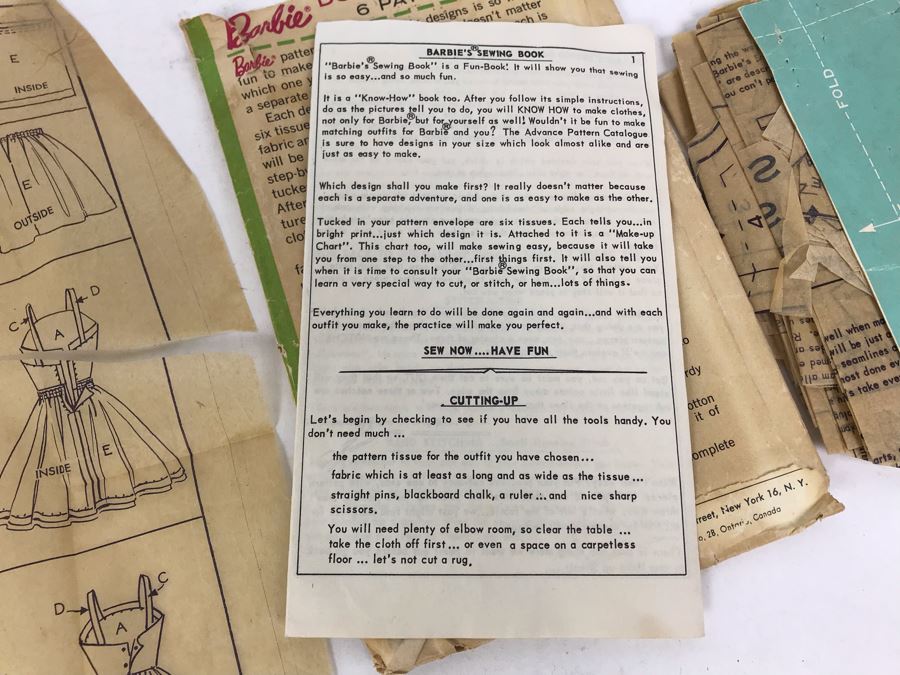 BARBIE'S® SEWING BOOK 1
"Barbie's® Sewing Book" is a Fun-Book! It will show you that sewing
is so easy...and so much fun.
It is a "Know-How" book too. After you follow its simple instructions,
do as the pictures tell you to do, you will KNOW HOW to make clothes,
not only for Barbie,® but for yourself as well! Wouldn't it be fun to make
matching outfits for Barbie® and you? The Advance Pattern Catalogue
is sure to have designs in your size which look almost alike and are
just as easy to make.
Which design shall you make first? It really doesn't matter because
each is a separate adventure, and one is as easy to make as the other.
Tucked in your pattern envelope are six tissues. Each tells you...in
bright print...just which design it is. Attached to it is a "Make-up
Chart". This chart too, will make sewing easy, because it will take
you from one step to the other...first things first. It will also tell you
when it is time to consult your "Barbie® Sewing Book", so that you can
learn a very special way to cut, or stitch, or hem...lots of things.
Everything you learn to do will be done again and again...and with each
outfit you make, the practice will make you perfect.
SEW NOW....HAVE FUN
CUTTING-UP
Let's begin by checking to see if you have all the tools handy. You
don't need much ...
the pattern tissue for the outfit you have chosen...
fabric which is at least as long and as wide as the tissue...
straight pins, blackboard chalk, a ruler ... and nice sharp
scissors.
You will need plenty of elbow room, so clear the table ...
take the cloth off first... or even a space on a carpetless
floor ... let's not cut a rug.
E
INSIDE
E
OUTSIDE
D
C
A
INSIDE
E
C
D
A
Barbie®
6
Barbie®
designs is so
doesn't matter
patter
fun to make
which one y
a separate
Each de
six tissue
fabric ar
will be
step-b
tucke
After
ture
clo
fa
rdy
otton
it of
omplete
reet, New York 16, N. Y.
o. 28, Ontario, Canada
FOLD
well when
will be just
seamlines
most done
s take